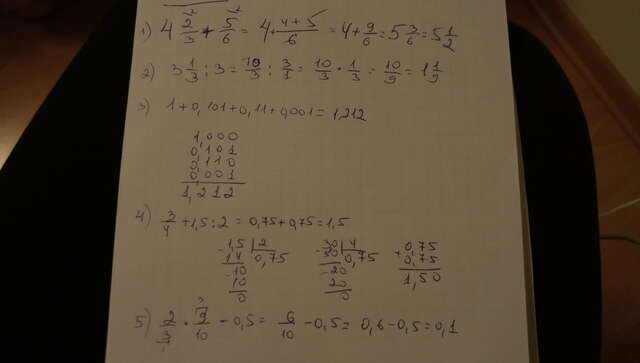 1) 4 2/3 + 5/6 = 4 + (4+5)/6 = 4 + 9/6 = 5 3/6 = 5 1/2
2) 3 1/3 : 3 = 10/3 : 3/1 = 10/3 · 1/3 = 10/9 = 1 1/9
3) 1+0,101+0,11+0,001=1,212
1,000
0,101
0,110
0,001
1,212
4) 3/4 + 1,5 : 2 = 0,75 + 0,75 = 1,5
-1,5 | 2
14 | 0,75
-10
10
0
-30 | 4
| 0,75
-20
20
0
+0,75
0,75
1,50
5) 2/3 · 9/10 - 0,5 = 6/10 - 0,5 = 0,6 - 0,5 = 0,1